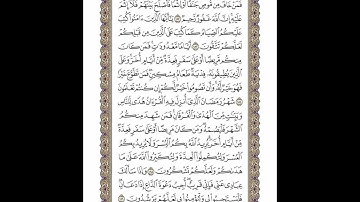 فَمَنْ خَافَ مِن مُّوصٍ جَنَفًا أَوْ إِثْمًا فَأَصْلَحَ بَيْنَهُمْ فَلَآ إِثْمَ
عَلَيْهِ إِنَّ ٱللَّهَ غَفُورٌ رَّحِيمٌ ١٨٢ يَٰٓأَيُّهَا ٱلَّذِينَ ءَامَنُوا۟ كُتِبَ
عَلَيْكُمُ ٱلصِّيَامُ كَمَا كُتِبَ عَلَى ٱلَّذِينَ مِن قَبْلِكُمْ
لَعَلَّكُمْ تَتَّقُونَ ١٨٣ أَيَّامًا مَّعْدُودَٰتٍ فَمَن كَانَ
مِنكُم مَّرِيضًا أَوْ عَلَىٰ سَفَرٍ فَعِدَّةٌ مِّنْ أَيَّامٍ أُخَرَ وَعَلَى
ٱلَّذِينَ يُطِيقُونَهُۥ فِدْيَةٌ طَعَامُ مِسْكِينٍ فَمَن تَطَوَّعَ خَيْرًا
فَهُوَ خَيْرٌ لَّهُۥ وَأَن تَصُومُوا۟ خَيْرٌ لَّكُمْ إِن كُنتُمْ تَعْلَمُونَ ١٨٤
شَهْرُ رَمَضَانَ ٱلَّذِىٓ أُنزِلَ فِيهِ ٱلْقُرْءَانُ هُدًى لِّلنَّاسِ
وَبَيِّنَٰتٍ مِّنَ ٱلْهُدَىٰ وَٱلْفُرْقَانِ فَمَن شَهِدَ مِنكُمُ
ٱلشَّهْرَ فَلْيَصُمْهُ وَمَن كَانَ مَرِيضًا أَوْ عَلَىٰ سَفَرٍ فَعِدَّةٌ
مِّنْ أَيَّامٍ أُخَرَ يُرِيدُ ٱللَّهُ بِكُمُ ٱلْيُسْرَ وَلَا يُرِيدُ بِكُمُ
ٱلْعُسْرَ وَلِتُكْمِلُوا۟ ٱلْعِدَّةَ وَلِتُكَبِّرُوا۟ ٱللَّهَ عَلَىٰ مَا
هَدَىٰكُمْ وَلَعَلَّكُمْ تَشْكُرُونَ ١٨٥ وَإِذَا سَأَلَكَ
عِبَادِى عَنِّى فَإِنِّى قَرِيبٌ أُجِيبُ دَعْوَةَ ٱلدَّاعِ إِذَا دَعَانِ
فَلْيَسْتَجِيبُوا۟ لِى وَلْيُؤْمِنُوا۟ بِى لَعَلَّهُمْ يَرْشُدُونَ ١٨٦